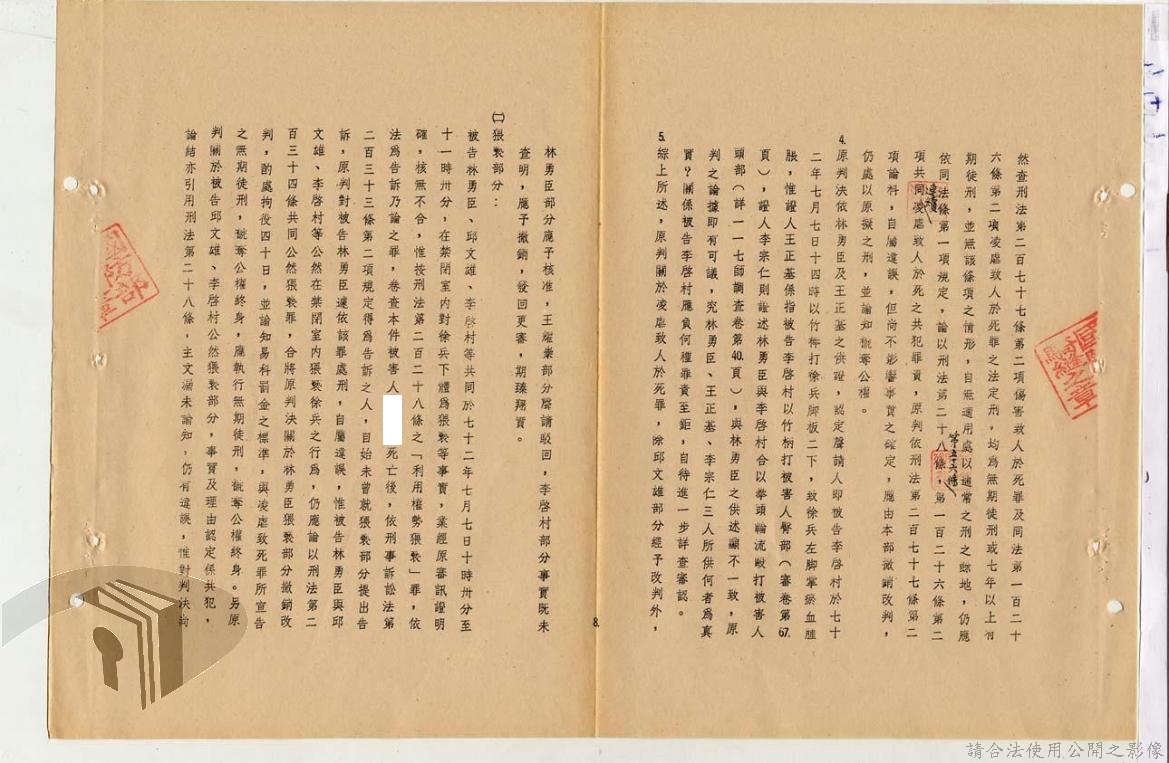 然查刑法第二百七十七條第二項傷害致人於死罪及同法第一百二十
六條第二項凌虐致人於死罪之法定刑，均為無期徒刑或七年以上有
期徒刑，並無該條項之情形，自無適用處以通常之刑之餘地，仍應
依同法條第一項規定，論以刑法第二十八條、第五十六條、第一百二十六條第二
項共同連續凌虐致人於死之共犯罪責，原判依刑法第二百七十七條第二
項論科，自屬違誤，但尚不影響事實之確定，應由本部撤銷改判，
仍處以原擬之刑，並諭知褫奪公權。
4.原判決依林勇臣及王正基之供證，認定聲請人即被告李啓村於七十
二年七月七日十四時以竹棒打徐兵脚板二下，致徐兵左脚掌瘀血腫
脹，惟證人王正基係指被告李啓村以竹柄打被害人臀部（審卷第67.
頁），證人李宗仁則證述林勇臣與李啓村合以拳頭輪流毆打被害人
頭部（詳一一七師調查卷第40.頁），與林勇臣之供述顯不一致，原
判之論據即有可議，究林勇臣、王正基、李宗仁三人所供何者為真
實？關係被告李啓村應負何種罪責至鉅，自待進一步詳查審認。
5.綜上所述，原判關於凌虐致人於死罪，除邱文雄部分經予改判外，
8.
林勇臣部分應予核准，王耀業部分聲請駁回，李啓村部分事實既未
查明，應予撤銷，發回更審，期臻翔實。
㈡猥褻部分：
被告林勇臣、邱文雄、李啓村等共同於七十二年七月七日十時卅分至
十一時卅分，在禁閉室內對徐兵下體為猥褻等事實，業經原審訊證明
確，核無不合，惟按刑法第二百二十八條之「利用權勢猥褻」罪，依
法為告訴乃論之罪，卷查本件被害人死亡後，依刑事訴訟法第
二百三十三條第二項規定得為告訴之人，自始未曾就猥褻部分提出告
訴，原判對被告林勇臣遽依該罪處刑，自屬違誤，惟被告林勇臣與邱
文雄、李啓村等公然在禁閉室內猥褻徐兵之行為，仍應論以刑法第二
百三十四條共同公然猥褻罪，合將原判決關於林勇臣猥褻部分撤銷改
判，酌處拘役四十日，並諭知易科罰金之標準，與凌虐致死罪所宣告
之無期徒刑，褫奪公權終身，應執行無期徒刑，褫奪公權終身。另原
判關於被告邱文雄、李啓村公然猥褻部分，事實及理由認定係共犯，
論結亦引用刑法第二十八條，主文漏未諭知，仍有違誤，惟對判決尚
請合法使用公開之影像